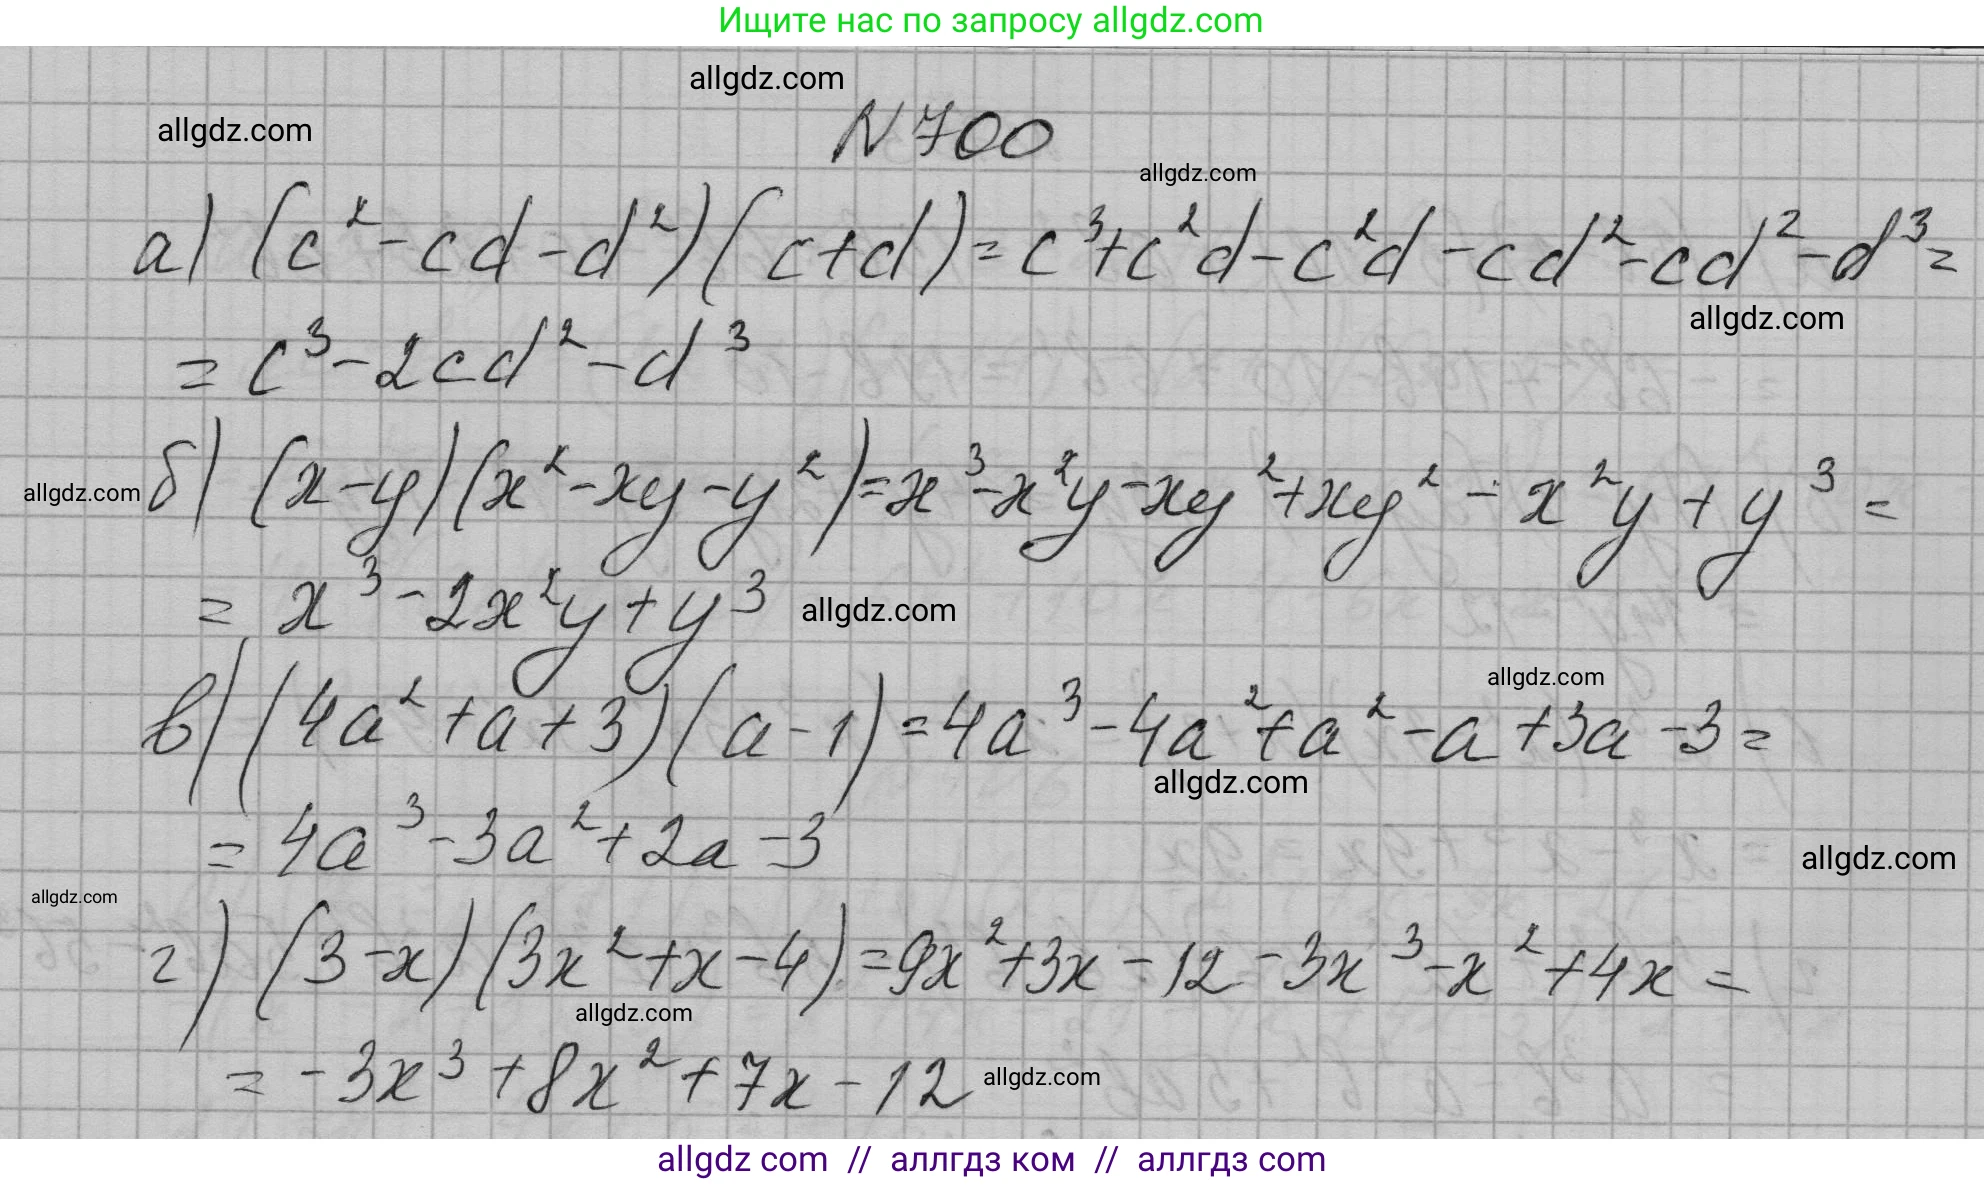 Ищите нас по запросу allgdz.com
allgdz.com
allgdz.com
N 700
allgdz.com
а) (c²-cd-d²)(c+d)=c³+c²d-c²d-cd²-cd²-d³=
allgdz.com
=c³-2cd²-d³
allgdz.com
б) (x-y)(x²-xy-y²)=x³-x²y-xy²+xy²-x²y+y³=
=x³-2x²y+y³
allgdz.com
allgdz.com
в) (4a²+a+3)(a-1)=4a³-4a²+a²-a+3a-3=
allgdz.com
=4a³-3a²+2a-3
allgdz.com
allgdz.com
г) (3-x)(3x²+x-4)=9x²+3x-12-3x³-x²+4x=
allgdz.com
=-3x³+8x²+7x-12
allgdz.com
allgdz com // аллгдз ком // аллгдз com